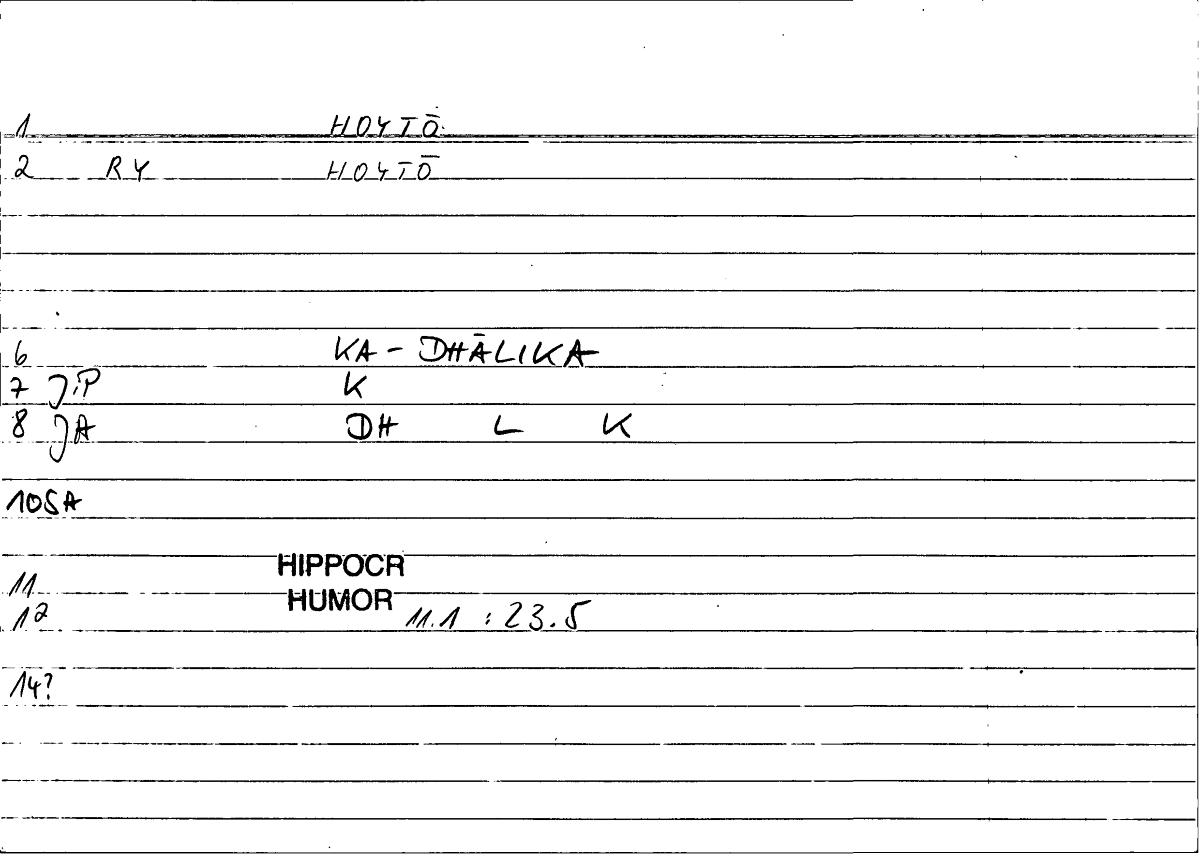 1 HOYTŌ
2 RY HOYTŌ
6 KA - DHĀLIKA
7 J:P K
8 JA DH L K
10SA
11 HIPPOCR
12 HUMOR 11.1 : 23.5
14?